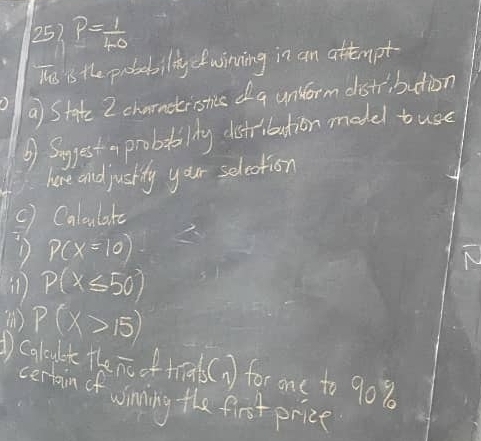 25) P = 1/40
This is the probability of winning in an attempt
a) State 2 characteristics of a uniform distribution
b) Suggest a probability distribution model to use
here and justify your selection
c) Calculate
i) P(X=10)
ii) P(X≤50)
iii) P(X>15)
d) Calculate the no of trials (n) for one to 90%
certain of winning the first prize.